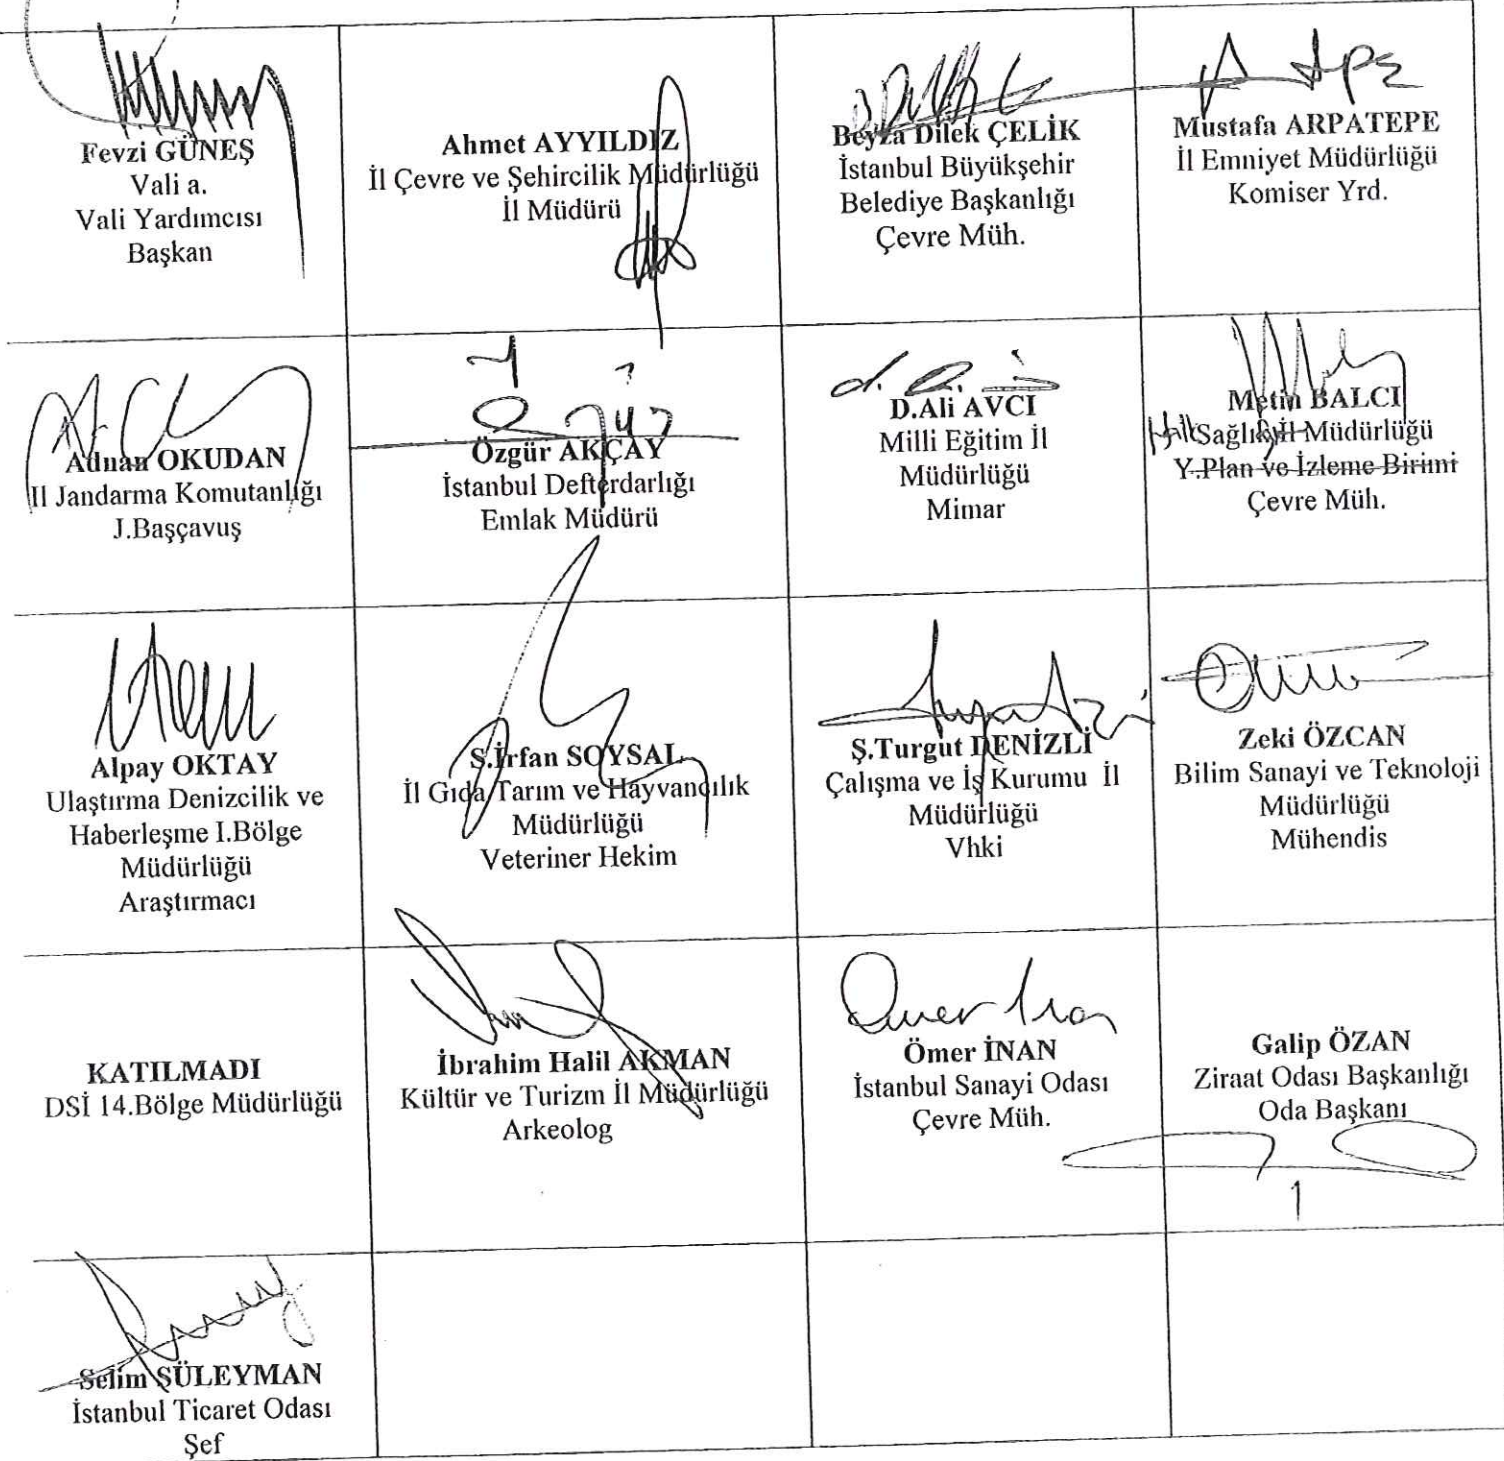 Fevzi GÜNEŞ
Vali a.
Vali Yardımcısı
Başkan
Ahmet AYYILDIZ
İl Çevre ve Şehircilik Müdürlüğü
İl Müdürü
Beyza Dilek ÇELİK
İstanbul Büyükşehir
Belediye Başkanlığı
Çevre Müh.
Mustafa ARPATEPE
İl Emniyet Müdürlüğü
Komiser Yrd.
Adnan OKUDAN
İl Jandarma Komutanlığı
J.Başçavuş
Özgür AKÇAY
İstanbul Defterdarlığı
Emlak Müdürü
D.Ali AVCI
Milli Eğitim İl
Müdürlüğü
Mimar
Metin BALCI
Halk Sağlığı İl Müdürlüğü
Y.Plan ve İzleme Birimi
Çevre Müh.
Alpay OKTAY
Ulaştırma Denizcilik ve
Haberleşme I.Bölge
Müdürlüğü
Araştırmacı
S.İrfan SOYSAL
İl Gıda Tarım ve Hayvancılık
Müdürlüğü
Veteriner Hekim
Ş.Turgut DENİZLİ
Çalışma ve İş Kurumu İl
Müdürlüğü
Vhki
Zeki ÖZCAN
Bilim Sanayi ve Teknoloji
Müdürlüğü
Mühendis
KATILMADI
DSİ 14.Bölge Müdürlüğü
İbrahim Halil AKMAN
Kültür ve Turizm İl Müdürlüğü
Arkeolog
Ömer İnan
Ömer İNAN
İstanbul Sanayi Odası
Çevre Müh.
Galip ÖZAN
Ziraat Odası Başkanlığı
Oda Başkanı
Selim SÜLEYMAN
İstanbul Ticaret Odası
Şef